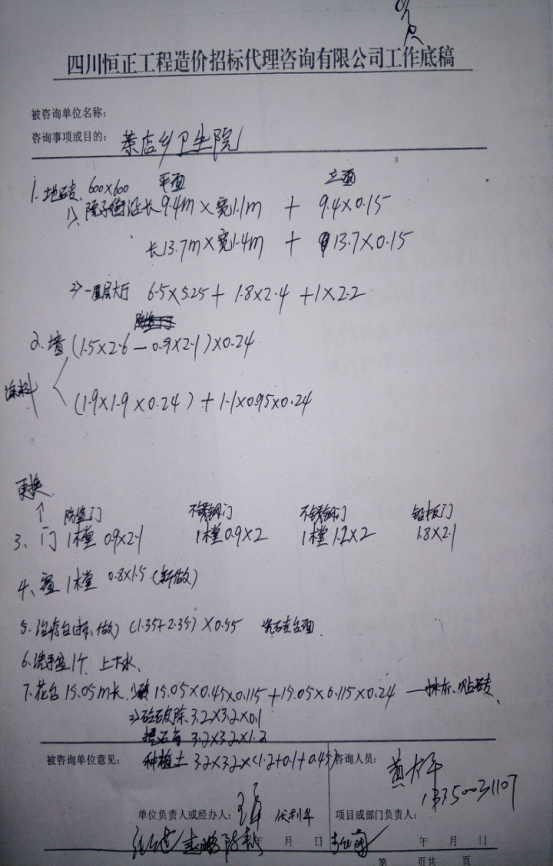 四川恒正工程造价招标代理咨询有限公司工作底稿
被咨询单位名称:
咨询事项或目的: 茶店乡卫生院
平面 立面
1. 地砖 600×600
1) 长9.4m×宽1.1m + 9.4×0.15
长13.7m×宽1.4m + 13.7×0.15
2) 一层大厅 6.5×5.25 + 1.8×2.4 + 1×2.2
2. 墙 (1.5×2.6 - 0.9×2.1)×0.24
涂料
(1.9×1.9×0.24) + 1.1×0.95×0.24
更换
↑ 防盗门 不锈钢门 不锈钢门 铅板门
3、门 1樘 0.9×2.1 1樘 0.9×2 1樘 1.2×2 1.8×2.1
4、窗 1樘 0.8×1.5 (新做)
5. 治疗台 (1.35+2.35)×0.55 瓷砖台面
6. 洗手盆1个 上下水、
7. 花台 15.05m长 1) 15.05×0.45×0.115 + 15.05×0.115×0.24
2) 砼破除 3.2×3.2×0.1
3.2×3.2×1.2
种植土 3.2×3.2×(1.2+0.1+0.45)
被咨询单位意见: 咨询人员:
13350031107
单位负责人或经办人: 项目或部门负责人:
年 月 日 年 月 日
第 页共 页